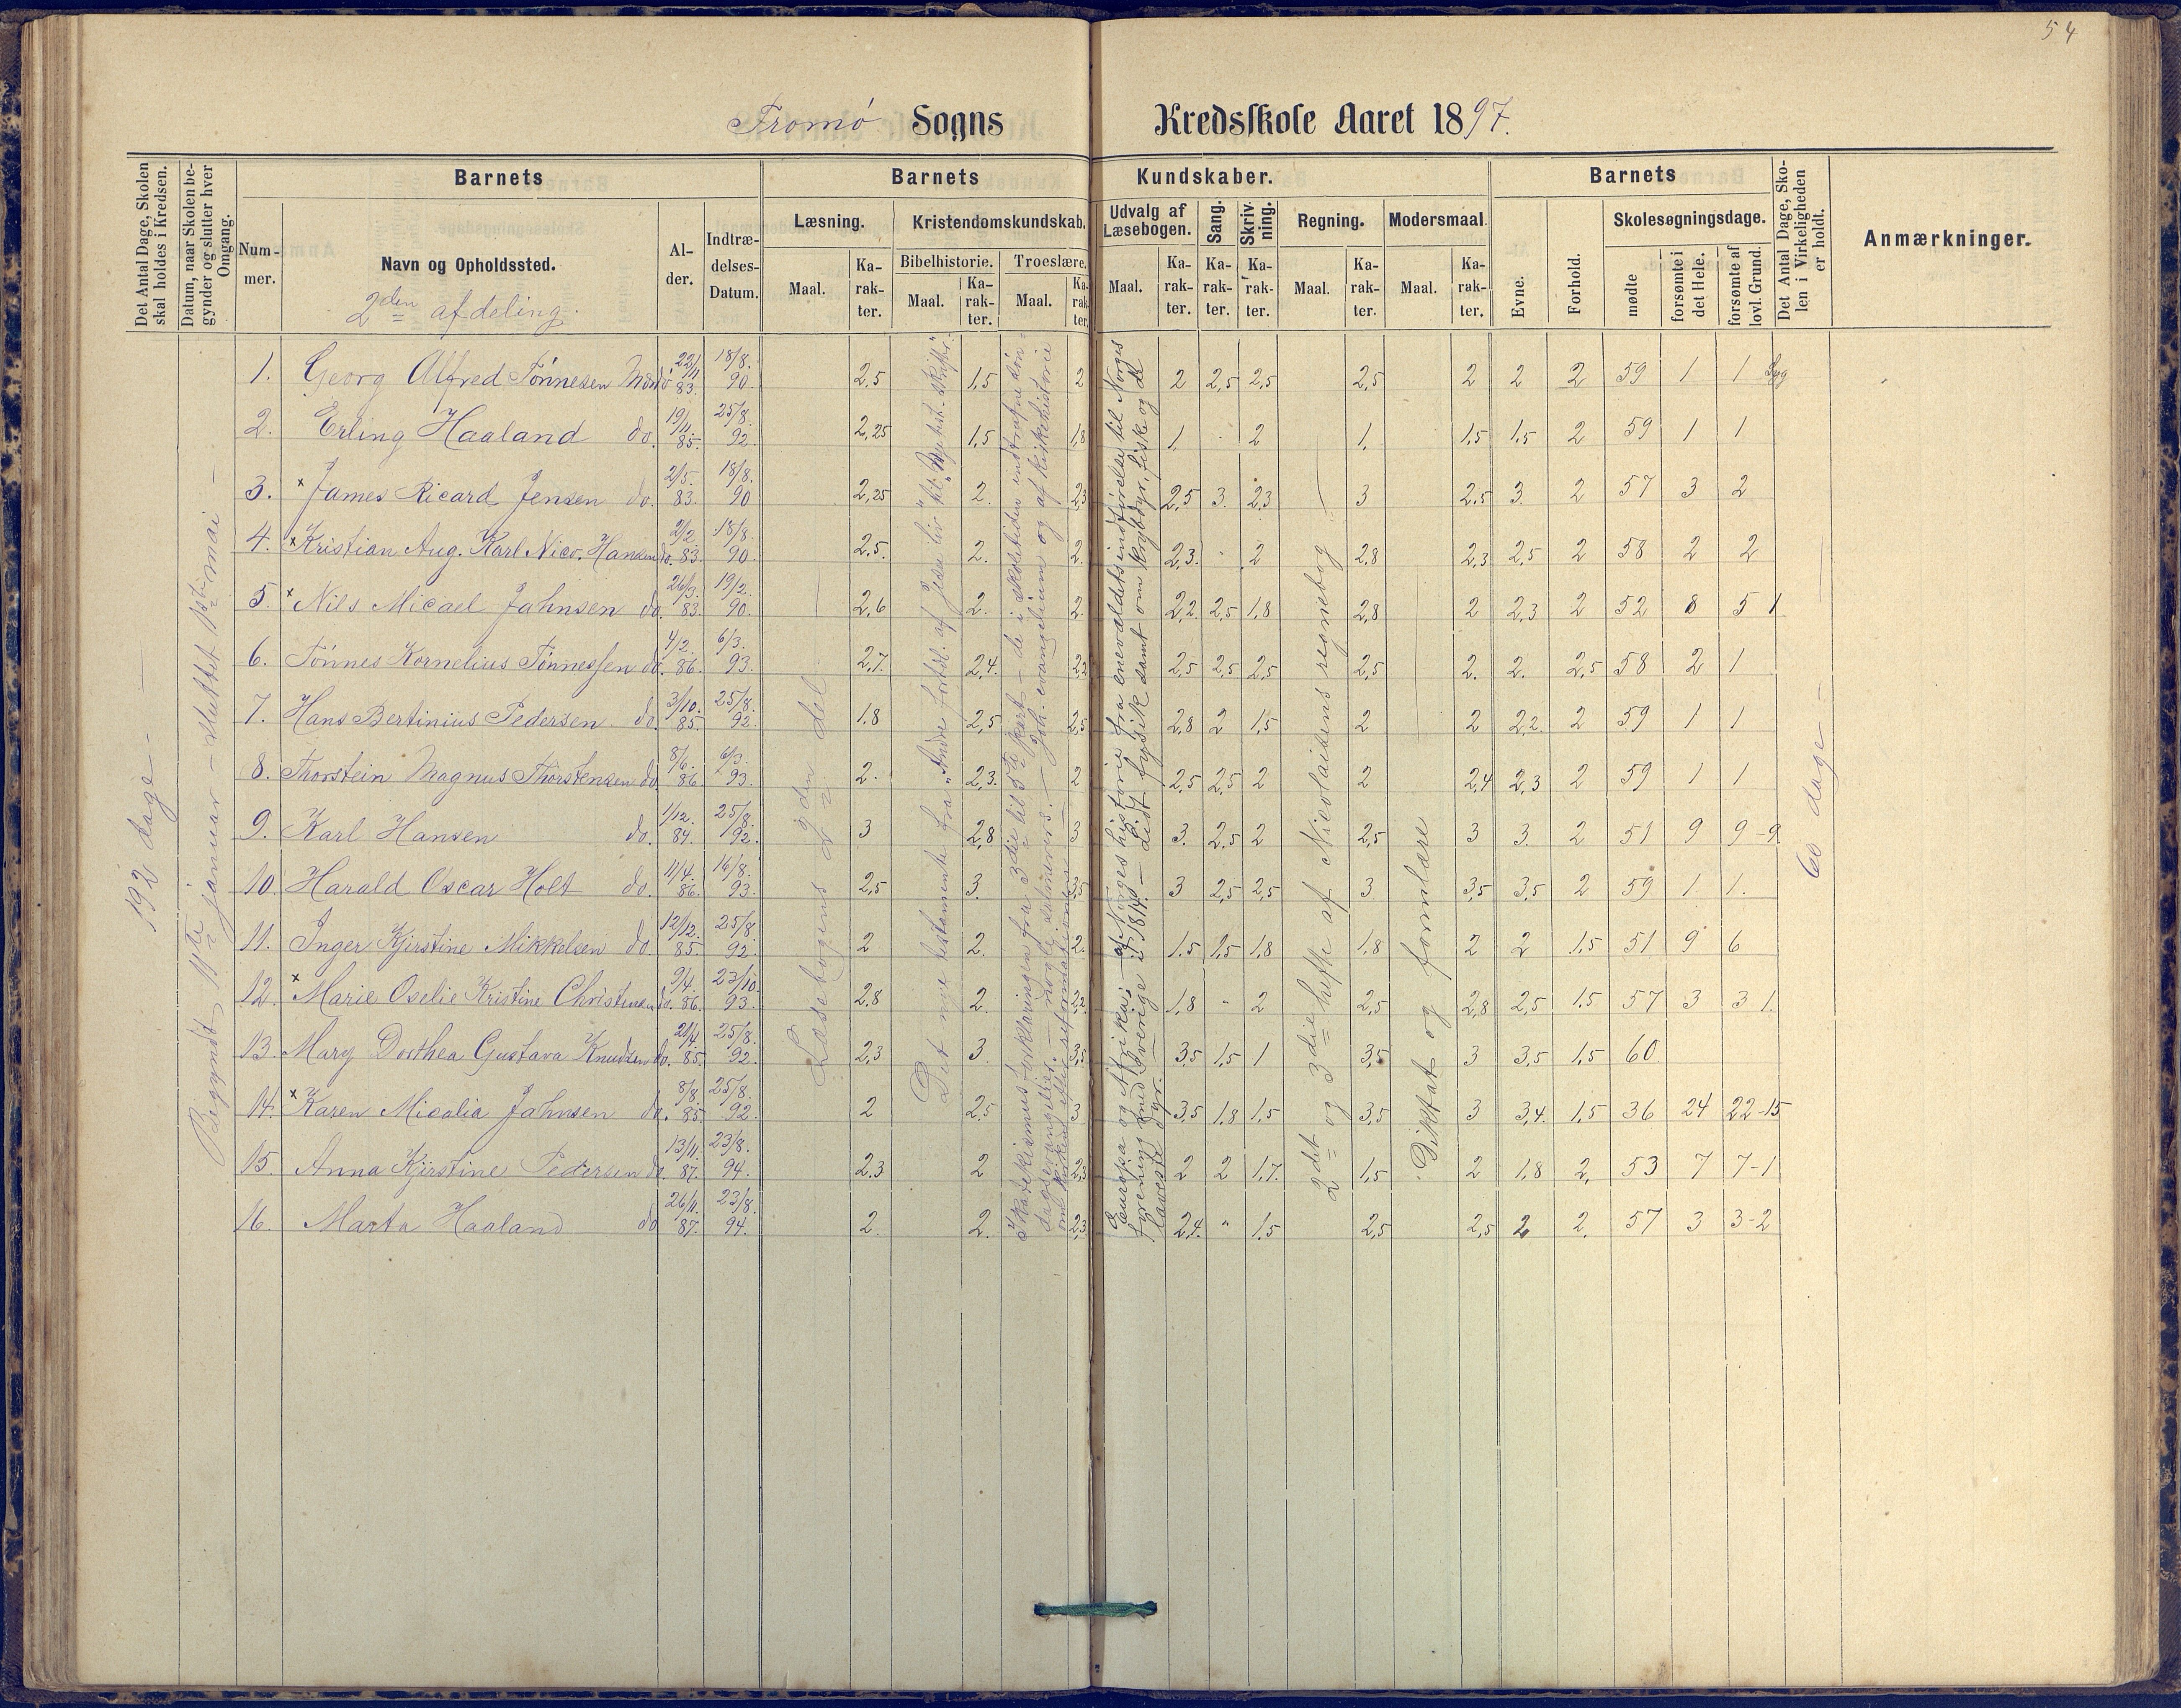 54
Tromø Sogns Kredsskole Aaret 1897.
Det Antal Dage, Skolen skal holdes i Kredsen.
Datum, naar Skolen begynder og slutter hver Omgang.
Barnets
Nummer.
Navn og Opholdssted.
2den afdeling.
Alder.
Indtrædelses-Datum.
Barnets Kundskaber.
Læsning.
Maal. Karakter.
Kristendomskundskab.
Bibelhistorie. Troeslære.
Maal. Karakter. Maal. Karakter.
Udvalg af Læsebogen.
Maal. Karakter.
Sang. Karakter.
Skrivning. Karakter.
Regning.
Maal. Karakter.
Modersmaal.
Maal. Karakter.
Barnets
Evne. Forhold.
Skolesøgningsdage.
mødte forsømte i det Hele. forsømte af lovl. Grund.
Det Antal Dage, Skolen i Virkeligheden er holdt.
Anmærkninger.
192 dage –
Begyndt 11te januar – sluttet 1ste mai –
Læsebogens 2den del
Det nye testamente fra "Andre fortæl. af Jesu liv" til "Apost. skrifter".
Katekismus forklaringen fra 3die til 5te part – de i skoletiden indtrufne søndagsevangelier – nogle salmevers. – Joh. evangelium og af kirkehistorie om kirken efter reformationen –
Europa og Afrika; – af Norges historie fra enevældets indførelse til Norges forening med Sverige i 1814. – Lidt fysik samt om krybdyr, fiske og de laveste dyr.
2det og 3die hefte af Nicolaisens regnebog –
Diktat og formlære
60 dage –
1. Georg Alfred Tønnesen do. 22/11 83. 18/8. 90. 2,5 1,5 2 2 2,5 2,5 2,5 2 2 2 59 1 1 Syg
2. Erling Haaland do. 19/11 85. 25/8. 92. 2,25 1,5 1,8 1 . 2 1. 1,5 1,5 2 59 1 1
3. × James Ricard Jensen do. 2/5. 83. 18/8. 90 2,25 2. 2,3 2,5 3. 2,3 3 2,5 3. 2 57 3 2
4. × Kristian Aug. Karl Nico. Hansen do. 2/2. 83. 18/8. 90. 2,5. 2. 2. 2,3. . 2 2,8 2,3 2,5 2 58 2 2
5. × Nils Micael Jahnsen do. 26/3. 83. 19/2. 90. 2,6 2. 2. 2,2. 2,5 1,8 2,8 2 2,3 2 52 8 5 1
6. Tønnes Kornelius Tønnessen do. 4/2. 86. 6/3. 93. 2,7. 2,4. 2,2 2,5 2,5 2,5 2,5 2. 2. 2,5 58 2 1
7. Hans Bertinius Pedersen do. 3/10. 85. 25/8. 92. 1,8 2,5 2,5 2,8 2 1,5 2 2 2,2. 2 59 1 1
8. Thorstein Magnus Thorstensen do. 8/6. 86. 6/3. 93. 2. 2,3. 2 2,5 2,5 2 2 2,4 2,3 2 59 1 1
9. Karl Hansen do. 1/12. 84. 25/8. 92. 3 2,8 3 3. 2,5 2 2,5 3 3. 2 51 9 9-9
10. Harald Oscar Holt do. 11/4. 86. 16/8. 93. 2,5 3. 3,5 3 2,5 2,5 3 3,5 3,5 2 59 1. 1.
11. Inger Kjirstine Mikkelsen do. 12/12. 85. 25/8. 92. 2 2. 2. 1,5 1,5 1,8 1,8 2 2 1,5 51 9 6
12. × Marie Oselie Kristine Christensen do. 9/4. 86. 23/10. 93. 2,8 2. 2,2 1,8 " 2 2,5 2,8 2,5 1,5 57 3 3 1.
13. Mary Dorthea Gustava Knudsen do. 21/4. 85. 25/8. 92. 2,3 3. 3,5 3,5 1,5 1 3,5 3 3,5 1,5 60
14. × Karen Micalia Jahnsen do. 8/8. 85. 25/8. 92. 2 2,5 3 3,5 1,8 1,5 3,5 3 3,4. 1,5 36 24 22-15
15. Anna Kjirstine Pedersen do. 13/11. 87. 23/8. 94. 2,3 2 2,3 2 2 1,7. 1,5 2 1,8 2, 53 7 7-1
16. Marta Haaland do 26/11. 87. 23/8. 94. 2. 2. 2,3 2,4. " 1,5 2,5 2,5 2 2. 57 3 3-2